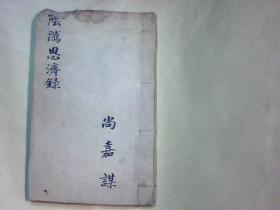 陰隲恩濟錄
尚嘉謀